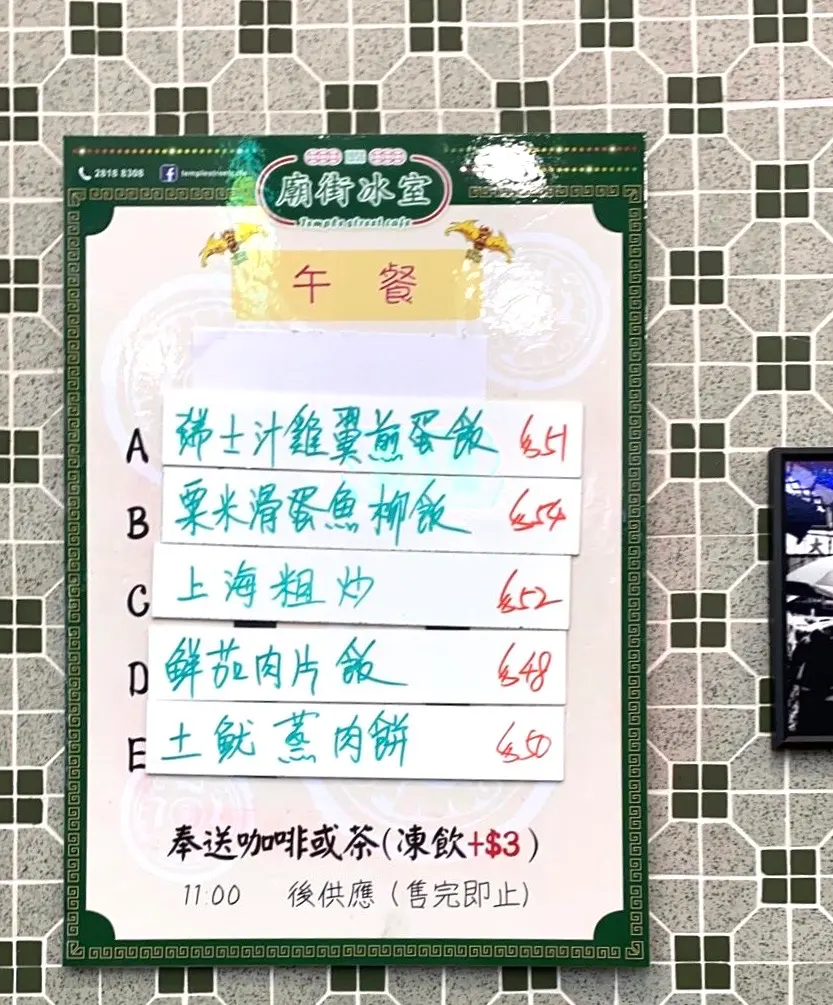 2818 8308
templestreetcafe
廟街冰室
Temple street cafe
午 餐
A 瑞士汁雞翼煎蛋飯 $51
B 粟米滑蛋魚柳飯 $54
C 上海粗炒 $52
D 鮮茄肉片飯 $48
E 土魷蒸肉餅 $50
奉送咖啡或茶(凍飲+$3)
11:00 後供應(售完即止)
大